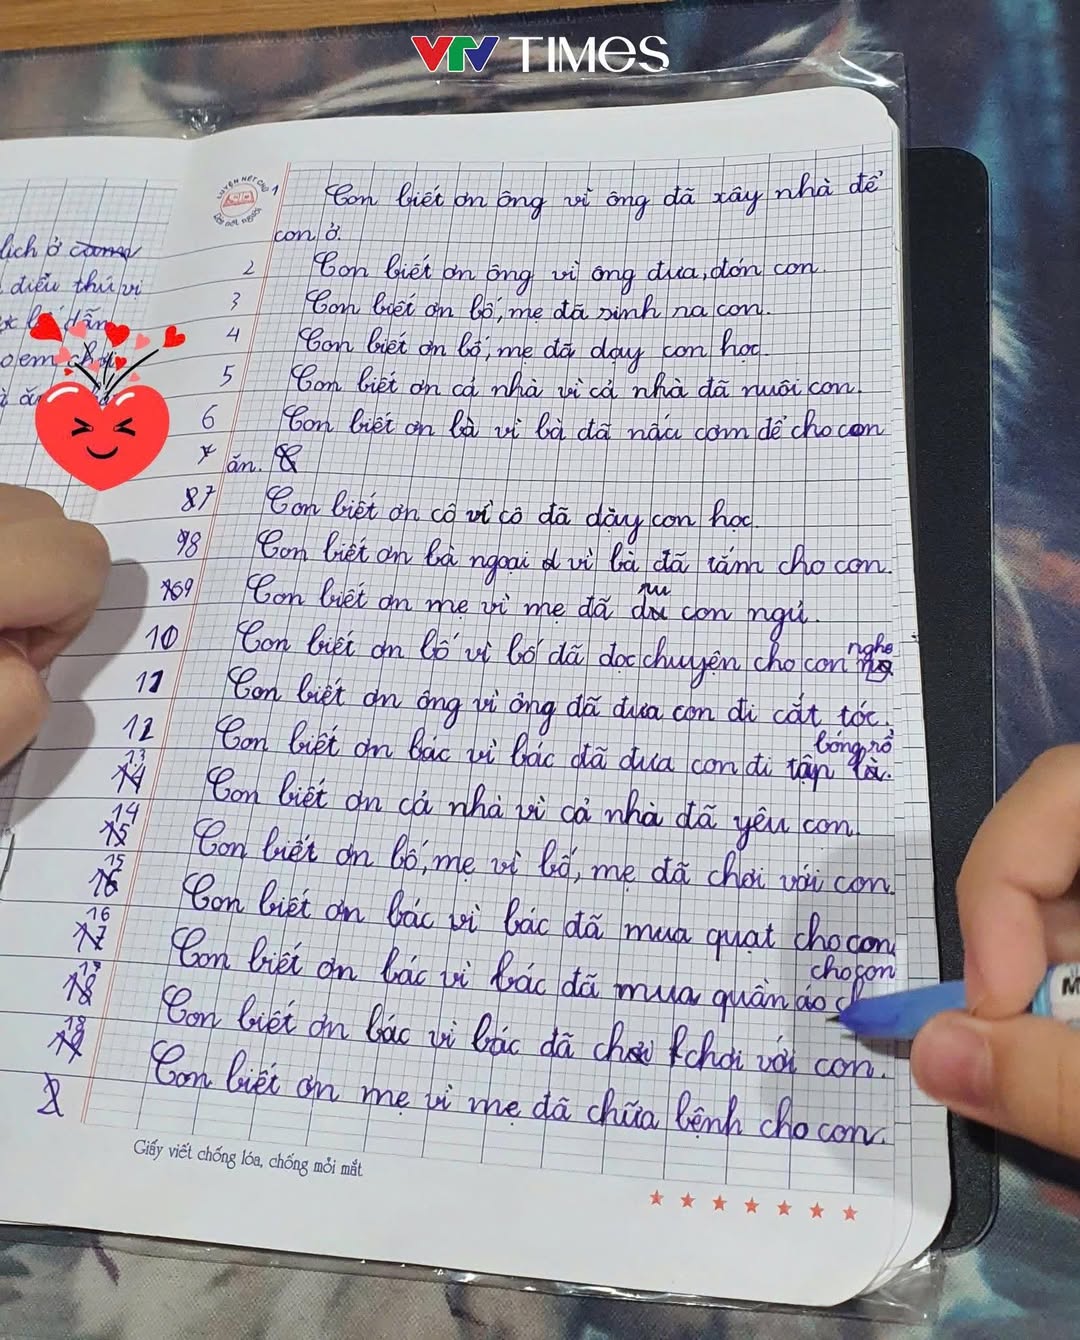 VTV TIMES
LUYỆN NÉT CHỮ
1 Con biết ơn ông vì ông đã xây nhà để
con ở.
2 Con biết ơn ông vì ông đưa, đón con.
3 Con biết ơn bố, mẹ đã sinh ra con.
4 Con biết ơn bố, mẹ đã dạy con học.
5 Con biết ơn cả nhà vì cả nhà đã nuôi con.
6 Con biết ơn bà vì bà đã nấu cơm để cho con
ăn.
7 Con biết ơn cô vì cô đã dạy con học.
8 Con biết ơn bà ngoại vì bà đã tắm cho con.
9 Con biết ơn mẹ vì mẹ đã ru con ngủ.
10 Con biết ơn bố vì bố đã đọc chuyện cho con nghe
11 Con biết ơn ông vì ông đã đưa con đi cắt tóc.
12 Con biết ơn bác vì bác đã đưa con đi tập bóng rổ
13 Con biết ơn cả nhà vì cả nhà đã yêu con.
14 Con biết ơn bố, mẹ vì bố, mẹ đã chơi với con.
15 Con biết ơn bác vì bác đã mua quạt cho con.
16 Con biết ơn bác vì bác đã mua quần áo cho con
17 Con biết ơn bác vì bác đã chơi với con.
18 Con biết ơn mẹ vì mẹ đã chữa bệnh cho con.
Giấy viết chống lóa, chống mỏi mắt
lịch ở
điều thú vị
dẫn
M